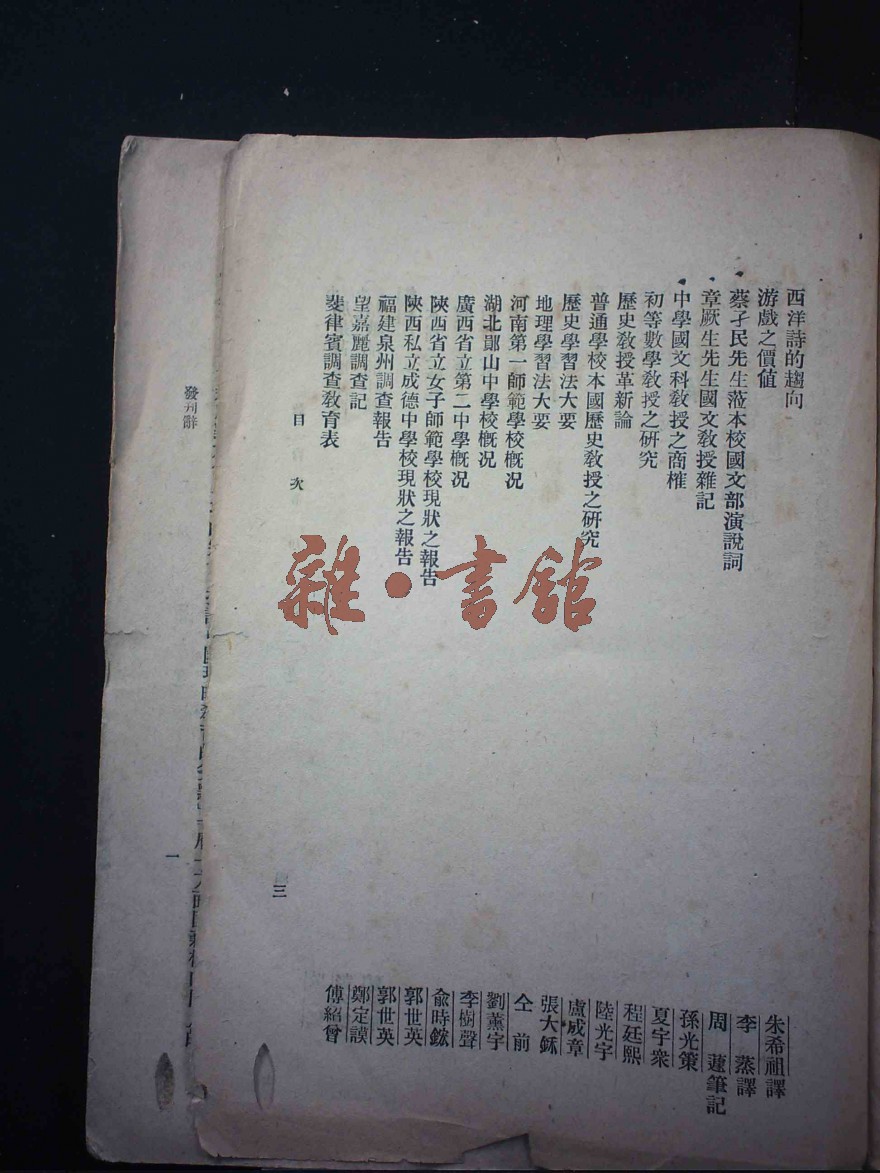 西洋詩的趨向 朱希祖譯
游戲之價値 李蒸譯
蔡孑民先生蒞本校國文部演說詞 周蘧筆記
章厥生先生國文敎授雜記 孫光策
中學國文科敎授之商榷 夏宇衆
初等數學敎授之硏究 程廷熙
歷史敎授革新論 陸光宇
普通學校本國歷史敎授之硏究 盧成章
歷史學習法大要 張大鉌
地理學習法大要 仝前
河南第一師範學校槪况 劉薰宇
湖北鄖山中學校槪况 李樹聲
廣西省立第二中學槪况 兪時鏦
陝西省立女子師範學校現狀之報告 郭世英
陝西私立成德中學校現狀之報告 郭世英
福建泉州調查報告 鄭定謨
望嘉麗調查記 傅紹曾
斐律賓調查敎育表
目次
三
發刊辭
一
雜·書館